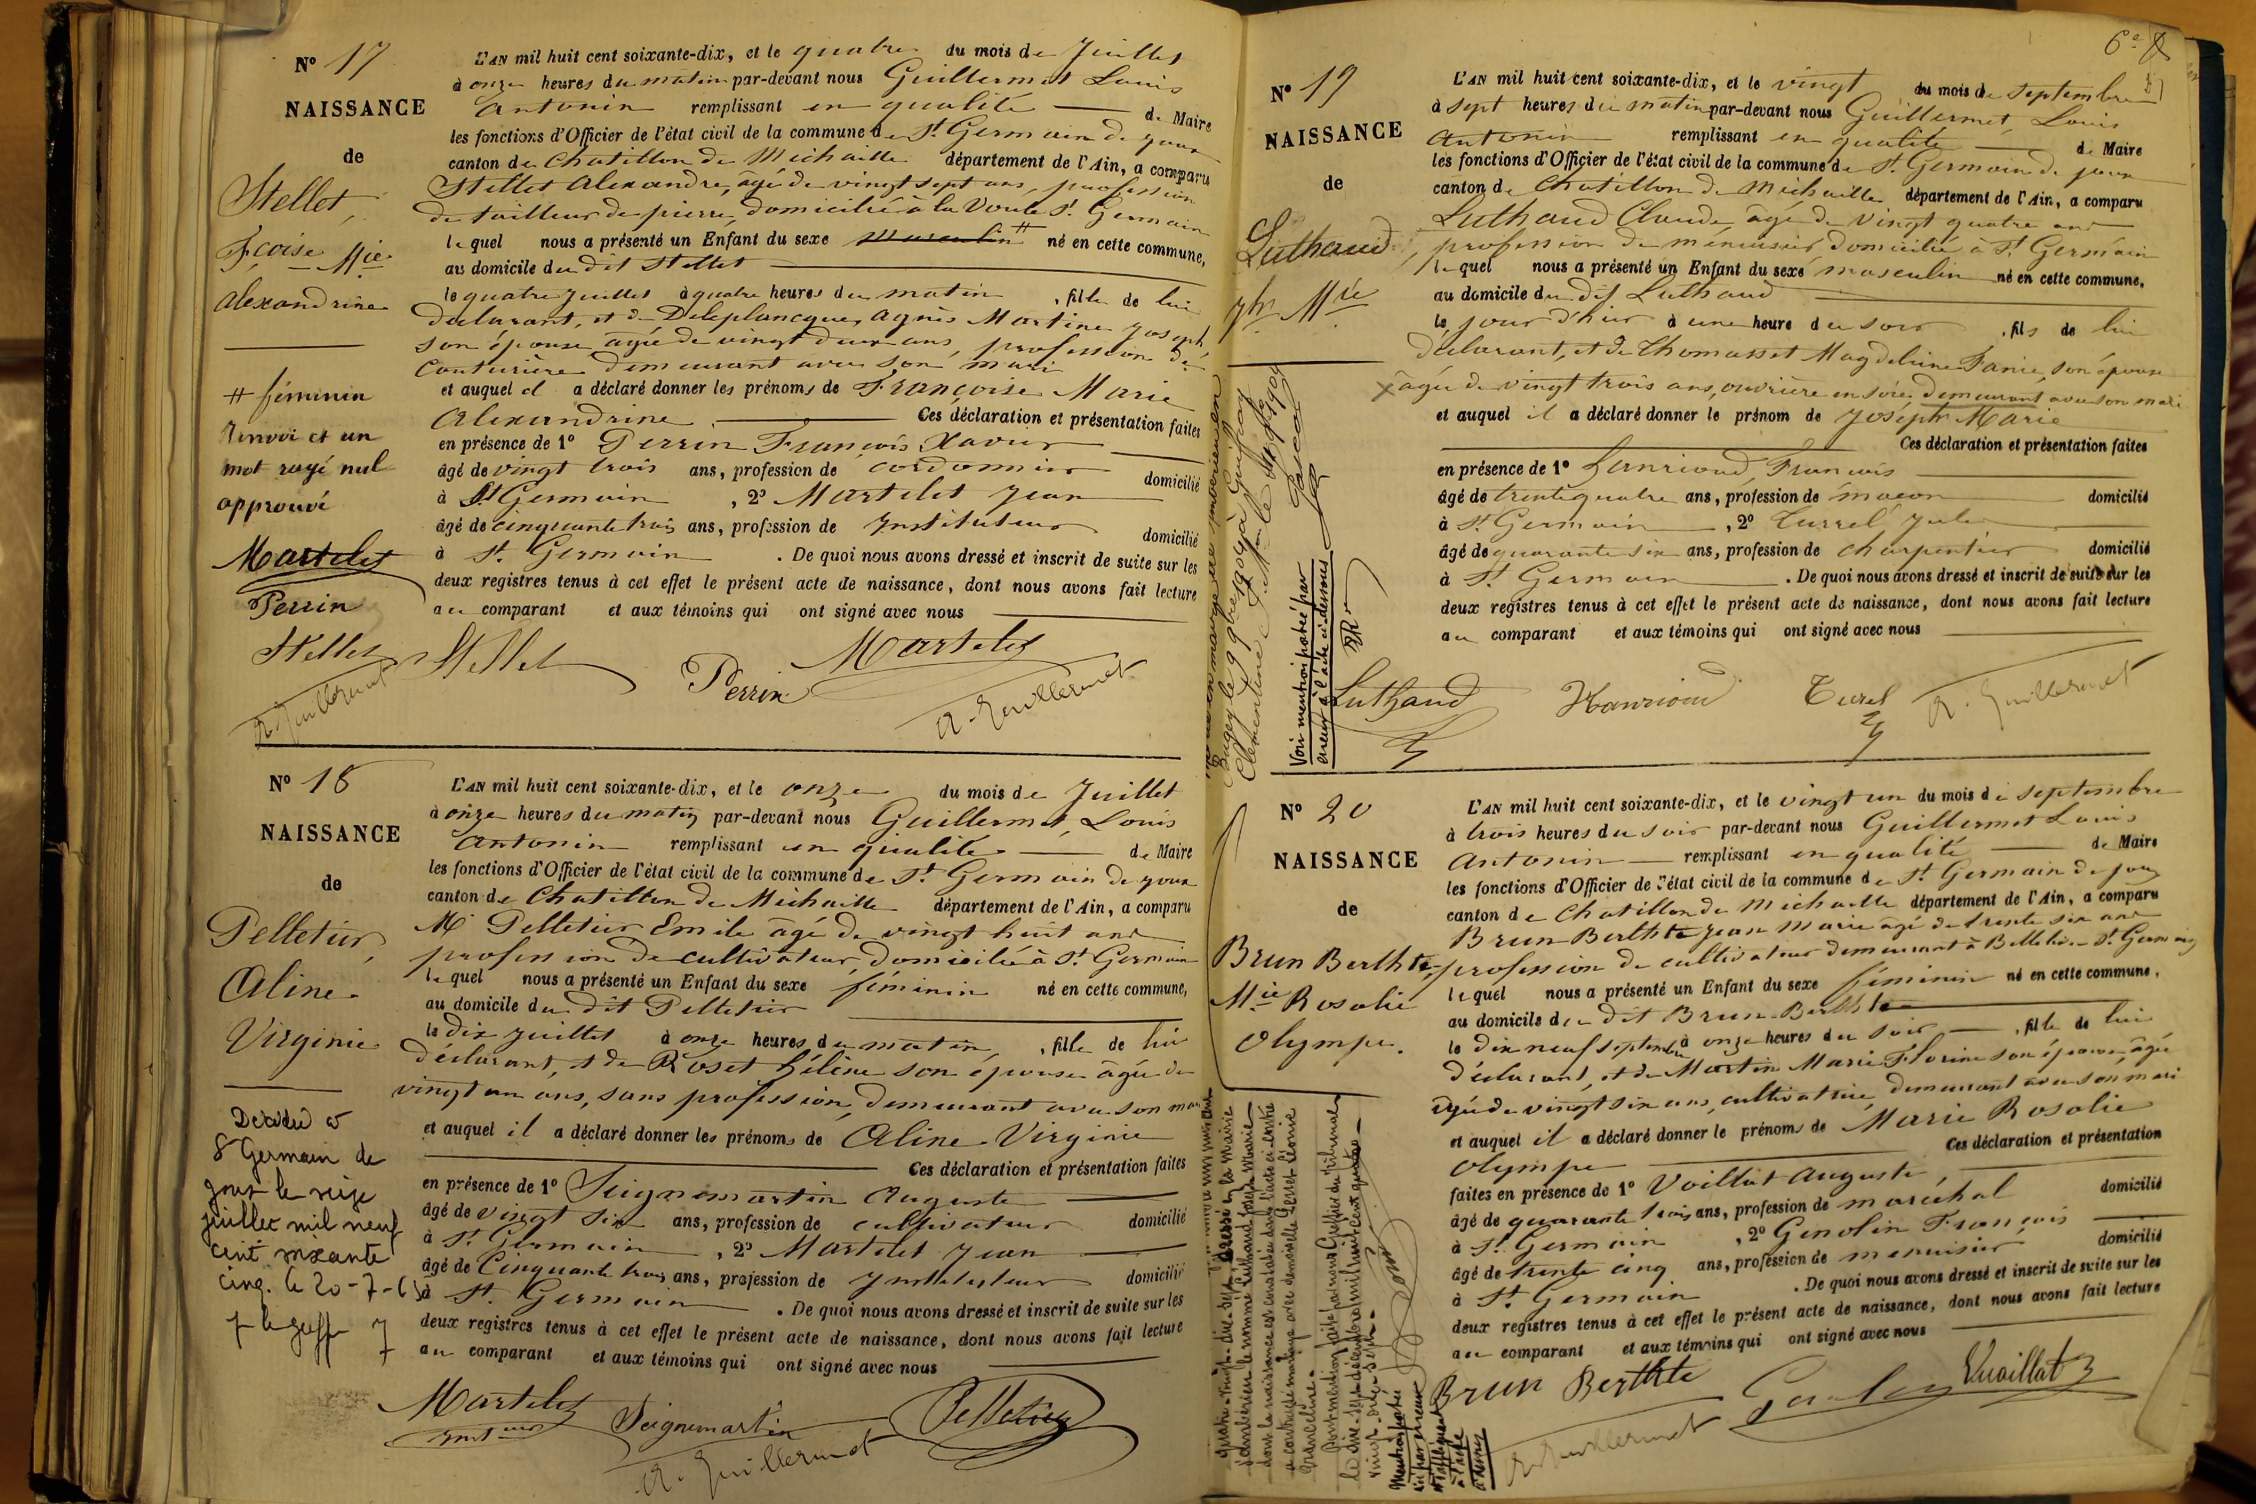 N° 17
NAISSANCE
de
Stellet,
Fçoise Mie
Alexandrine
# féminin
Renvoi et un
mot rayé nul
approuvé
Martelet
Perrin
Stellet
A. Guillermet
L'AN mil huit cent soixante-dix, et le quatre du mois de Juillet
à onze heures du matin par-devant nous Guillermet Louis
Antonin remplissant en qualité de Maire
les fonctions d'Officier de l'état civil de la commune de St Germain de Joux
canton de Chatillon de Michaille département de l'Ain, a comparu
Stellet Alexandre, âgé de vingt sept ans, profession
de tailleur de pierre, domicilié à la Voute St Germain
lequel nous a présenté un Enfant du sexe masculin # né en cette commune,
au domicile du dit Stellet
le quatre Juillet à quatre heures du matin, fille de lui
déclarant, et de Deleplancque Agnès Martine Joseph,
son épouse âgée de vingt deux ans, profession de
couturière demeurant avec son mari
et auquel il a déclaré donner les prénoms de Françoise Marie
Alexandrine Ces déclaration et présentation faites
en présence de 1° Perrin François Xavier
âgé de vingt trois ans, profession de cordonnier domicilié
à St Germain, 2° Martelet Jean
âgé de cinquante trois ans, profession de Instituteur domicilié
à St Germain. De quoi nous avons dressé et inscrit de suite sur les
deux registres tenus à cet effet le présent acte de naissance, dont nous avons fait lecture
au comparant et aux témoins qui ont signé avec nous
Stellet Perrin Martelet
A. Guillermet
N° 18
NAISSANCE
de
Pelletier,
Aline
Virginie
Décédée à
St Germain de
Joux le seize
juillet mil neuf
cent soixante
cinq. le 20-7-65
L'AN mil huit cent soixante-dix, et le onze du mois de Juillet
à onze heures du matin par-devant nous Guillermet, Louis
Antonin remplissant en qualité de Maire
les fonctions d'Officier de l'état civil de la commune de St Germain de Joux
canton de Chatillon de Michaille département de l'Ain, a comparu
Mr Pelletier Emile âgé de vingt huit ans
profession de cultivateur, domicilié à St Germain
lequel nous a présenté un Enfant du sexe féminin né en cette commune,
au domicile du dit Pelletier
le dix Juillet à onze heures du matin, fille de lui
déclarant, et de Roset Hélène son épouse âgée de
vingt un ans, sans profession, demeurant avec son mari
et auquel il a déclaré donner les prénoms de Aline Virginie
Ces déclaration et présentation faites
en présence de 1° Seignemartin Auguste
âgé de vingt six ans, profession de cultivateur domicilié
à St Germain, 2° Martelet Jean
âgé de Cinquante trois ans, profession de Instituteur domicilié
à St Germain. De quoi nous avons dressé et inscrit de suite sur les
deux registres tenus à cet effet le présent acte de naissance, dont nous avons fait lecture
au comparant et aux témoins qui ont signé avec nous
Martelet Seignemartin Pelletier
A. Guillermet
6e
N° 19
NAISSANCE
de
Luthaud,
Jph Mie
Voir mention portée par
erreur à l'acte ci-dessous
L'AN mil huit cent soixante-dix, et le vingt du mois de septembre
à sept heures du matin par-devant nous Guillermet, Louis
Antonin remplissant en qualité de Maire
les fonctions d'Officier de l'état civil de la commune de St Germain de Joux
canton de Chatillon de Michaille département de l'Ain, a comparu
Luthaud Claude âgé de vingt quatre ans
profession de menuisier domicilié à St Germain
lequel nous a présenté un Enfant du sexe masculin né en cette commune,
au domicile du dit Luthaud
le jour d'hier à une heure du soir, fils de lui
déclarant, et de Thomasset Magdeleine Fanie, son épouse
âgée de vingt trois ans, ouvrière en soie, demeurant avec son mari
et auquel il a déclaré donner le prénom de Joseph Marie
Ces déclaration et présentation faites
en présence de 1° Hanrioud, François
âgé de trente quatre ans, profession de maçon domicilié
à St Germain, 2° Turrel Jules
âgé de quarante six ans, profession de charpentier domicilié
à St Germain. De quoi nous avons dressé et inscrit de suite sur les
deux registres tenus à cet effet le présent acte de naissance, dont nous avons fait lecture
au comparant et aux témoins qui ont signé avec nous
Luthaud Hanrioud Turel A. Guillermet
N° 20
NAISSANCE
de
Brun Berthte,
Mie Rosalie
Olympe.
Mention portée
ici par erreur
s'appliquant
à l'acte
ci-dessus
L'AN mil huit cent soixante-dix, et le vingt un du mois de septembre
à trois heures du soir par-devant nous Guillermet Louis
Antonin remplissant en qualité de Maire
les fonctions d'Officier de l'état civil de la commune de St Germain de Joux
canton de Chatillon de Michaille département de l'Ain, a comparu
Brun Berthte Jean Marie âgé de trente six ans
profession de cultivateur demeurant à St Germain
lequel nous a présenté un Enfant du sexe féminin né en cette commune,
au domicile du dit Brun Berthte
le dix neuf septembre à onze heures du soir, fille de lui
déclarant, et de Martin Marie Florine son épouse, âgée
âgée de vingt six ans, cultivatrice, demeurant avec son mari
et auquel il a déclaré donner le prénoms de Marie Rosalie
Olympe Ces déclaration et présentation
faites en présence de 1° Vuillat Auguste
âgé de quarante trois ans, profession de maréchal domicilié
à St Germain, 2° Genolin François
âgé de trente cinq ans, profession de menuisier domicilié
à St Germain. De quoi nous avons dressé et inscrit de suite sur les
deux registres tenus à cet effet le présent acte de naissance, dont nous avons fait lecture
au comparant et aux témoins qui ont signé avec nous
Brun Berthte Vuaillat
A. Guillermet